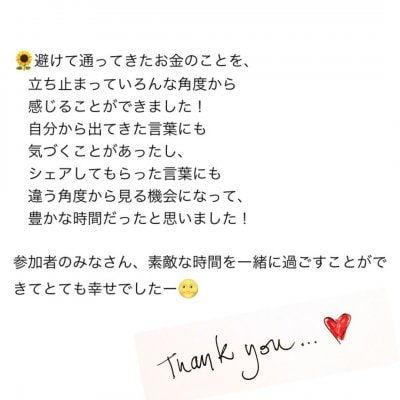 🌻避けて通ってきたお金のことを、
立ち止まっていろんな角度から
感じることができました！
自分から出てきた言葉にも
気づくことがあったし、
シェアしてもらった言葉にも
違う角度から見る機会になって、
豊かな時間だったと思いました！
参加者のみなさん、素敵な時間を一緒に過ごすことがで
きてとても幸せでしたー🌝
Thank you... ❤